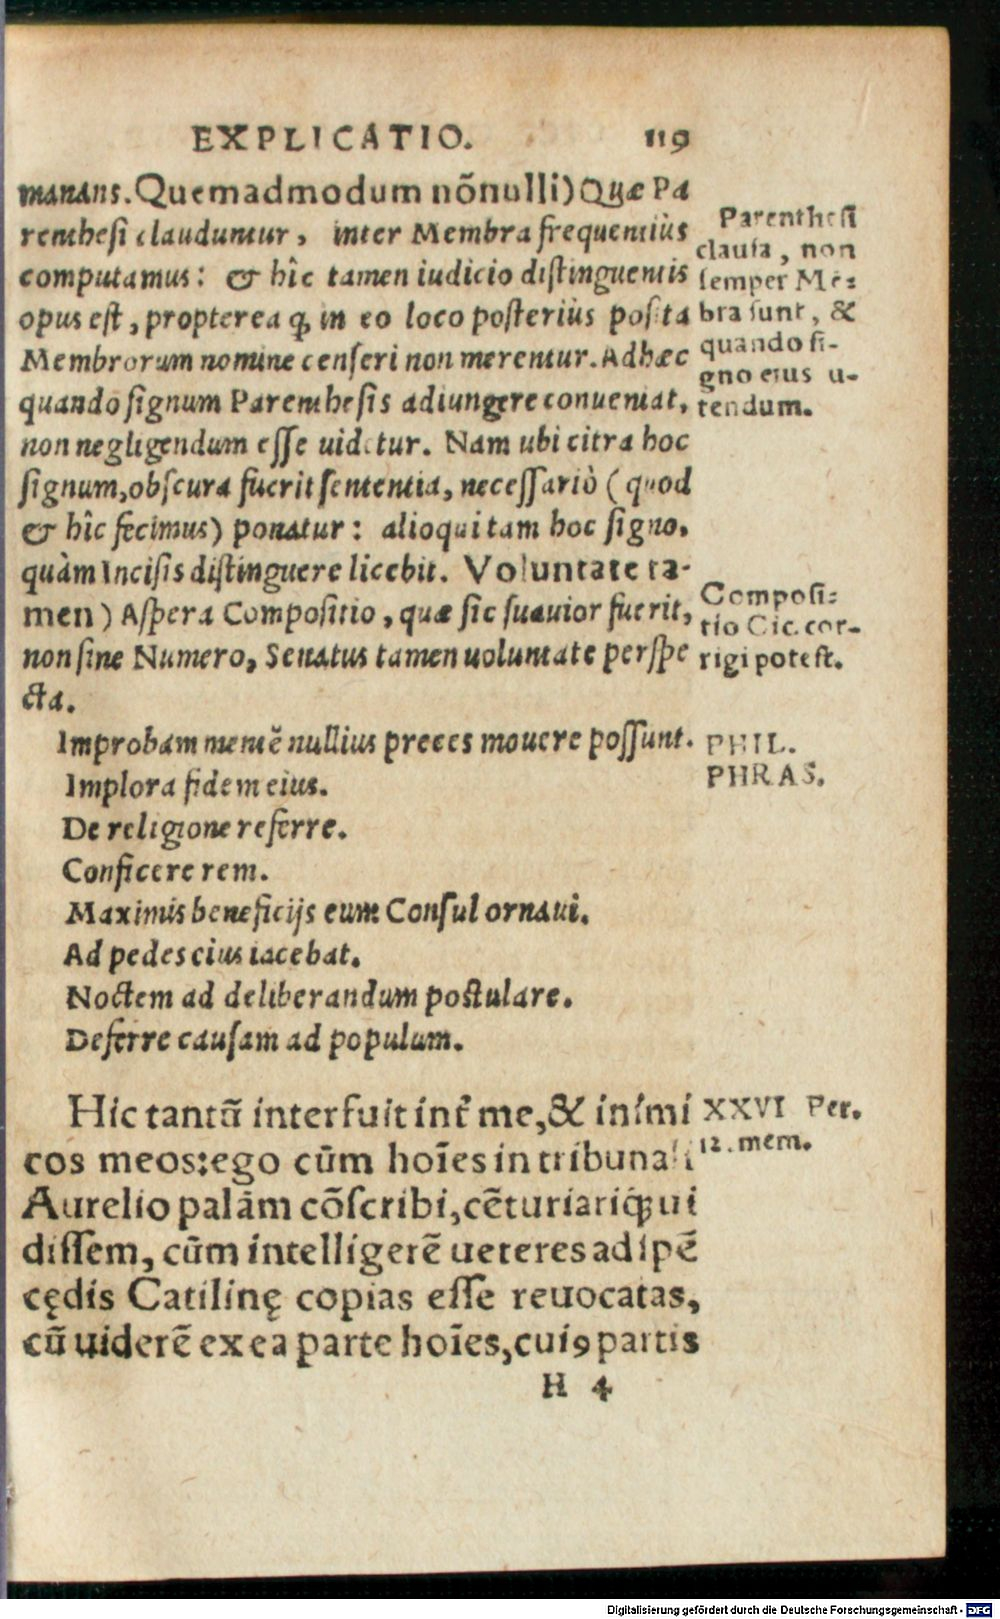 EXPLICATIO. 119
manans. Quemadmodum nõnulli) Quæ Pa
renthesi clauduntur, inter Membra frequentiùs
computamus: & hîc tamen iudicio distinguentis
opus est, propterea q̃, in eo loco posteriùs posita
Membrorum nomine censeri non merentur. Adhæc
quando signum Parenthesis adiungere conueniat,
non negligendum esse uidetur. Nam ubi citra hoc
signum, obscura fuerit sententia, necessariò (quod
& hîc fecimus) ponatur: alioqui tam hoc signo,
quàm Incisis distinguere licebit. Voluntate ta-
men) Aspera Compositio, quæ sic suauior fuerit,
non sine Numero, Senatus tamen uoluntate perspe
cta.
Parenthesi
clausa, non
semper Mē=
bra sunt, &
quando si-
gno eius u-
tendum.
Composi=
tio Cic. cor-
rigi potest.
Improbam mentē nullius preces mouere possunt.
Implora fidem eius.
De religione referre.
Conficere rem.
Maximis beneficijs eum Consul ornaui.
Ad pedes eius iacebat.
Noctem ad deliberandum postulare.
Deferre causam ad populum.
PHIL.
PHRAS.
Hic tantū interfuit int̃ me, & inimi
cos meos: ego cũm hoīes in tribunali
Aurelio palàm cōscribi, cēturiariq̃; ui
dissem, cũm intelligerē ueteres ad spē
cędis Catilinę copias esse reuocatas,
cū uiderē ex ea parte hoīes, cuiꝰ partis
XXVI Per.
12. mem.
H 4
Digitalisierung gefördert durch die Deutsche Forschungsgemeinschaft - DFG